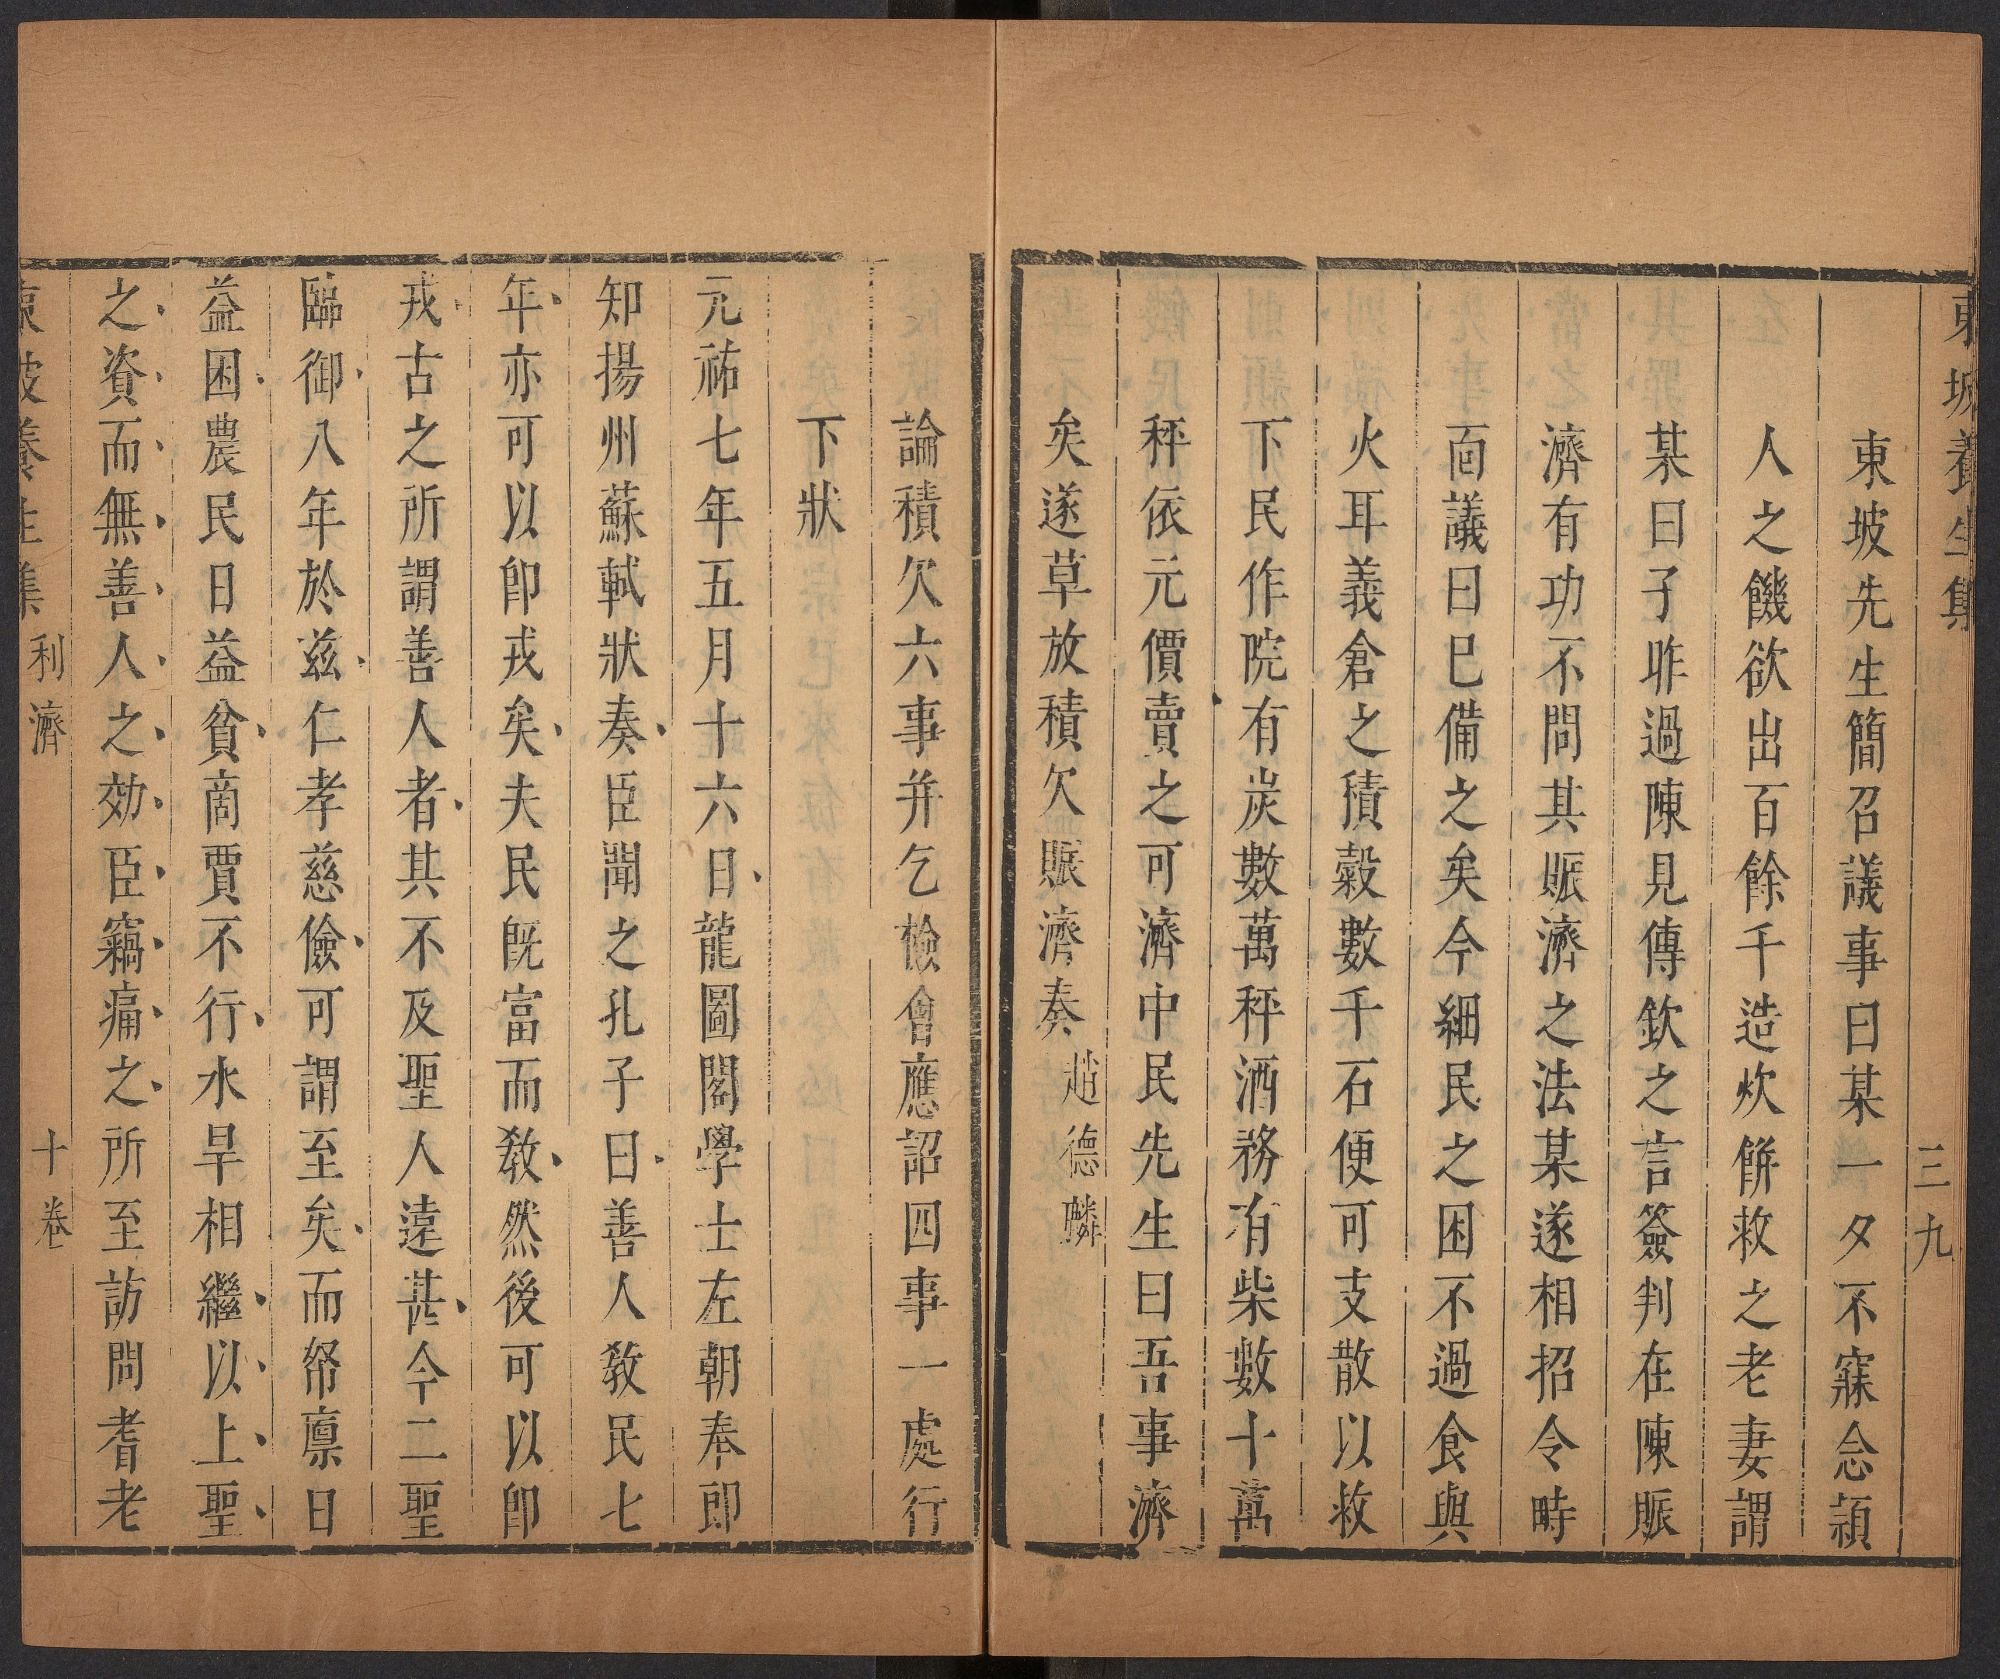 東坡養生集 三九
東坡先生簡召議事曰某一夕不寐念潁
人之饑欲出百餘千造炊餅救之老妻謂
某曰子昨過陳見傳欽之言簽判在陳賑
濟有功不問其賑濟之法某遂相招令時
面議曰已備之矣今細民之困不過食與
火耳義倉之積穀數千石便可支散以救
下民作院有炭數萬秤酒務有柴數十萬
秤依元價賣之可濟中民先生曰吾事濟
矣遂草放積欠賑濟奏 趙德麟
論積欠六事并乞檢會應詔四事一處行
下狀
元祐七年五月十六日龍圖閣學士左朝奉郎
知揚州蘇軾狀奏臣聞之孔子曰善人教民七
年亦可以即戎矣夫民既富而教然後可以即
戎古之所謂善人者其不及聖人遠甚今二聖
臨御八年於兹仁孝慈儉可謂至矣而帑廩日
益困農民日益貧商賈不行水旱相繼以上聖
之資而無善人之効臣竊痛之所至訪問耆老
東坡養生集 利濟 十卷